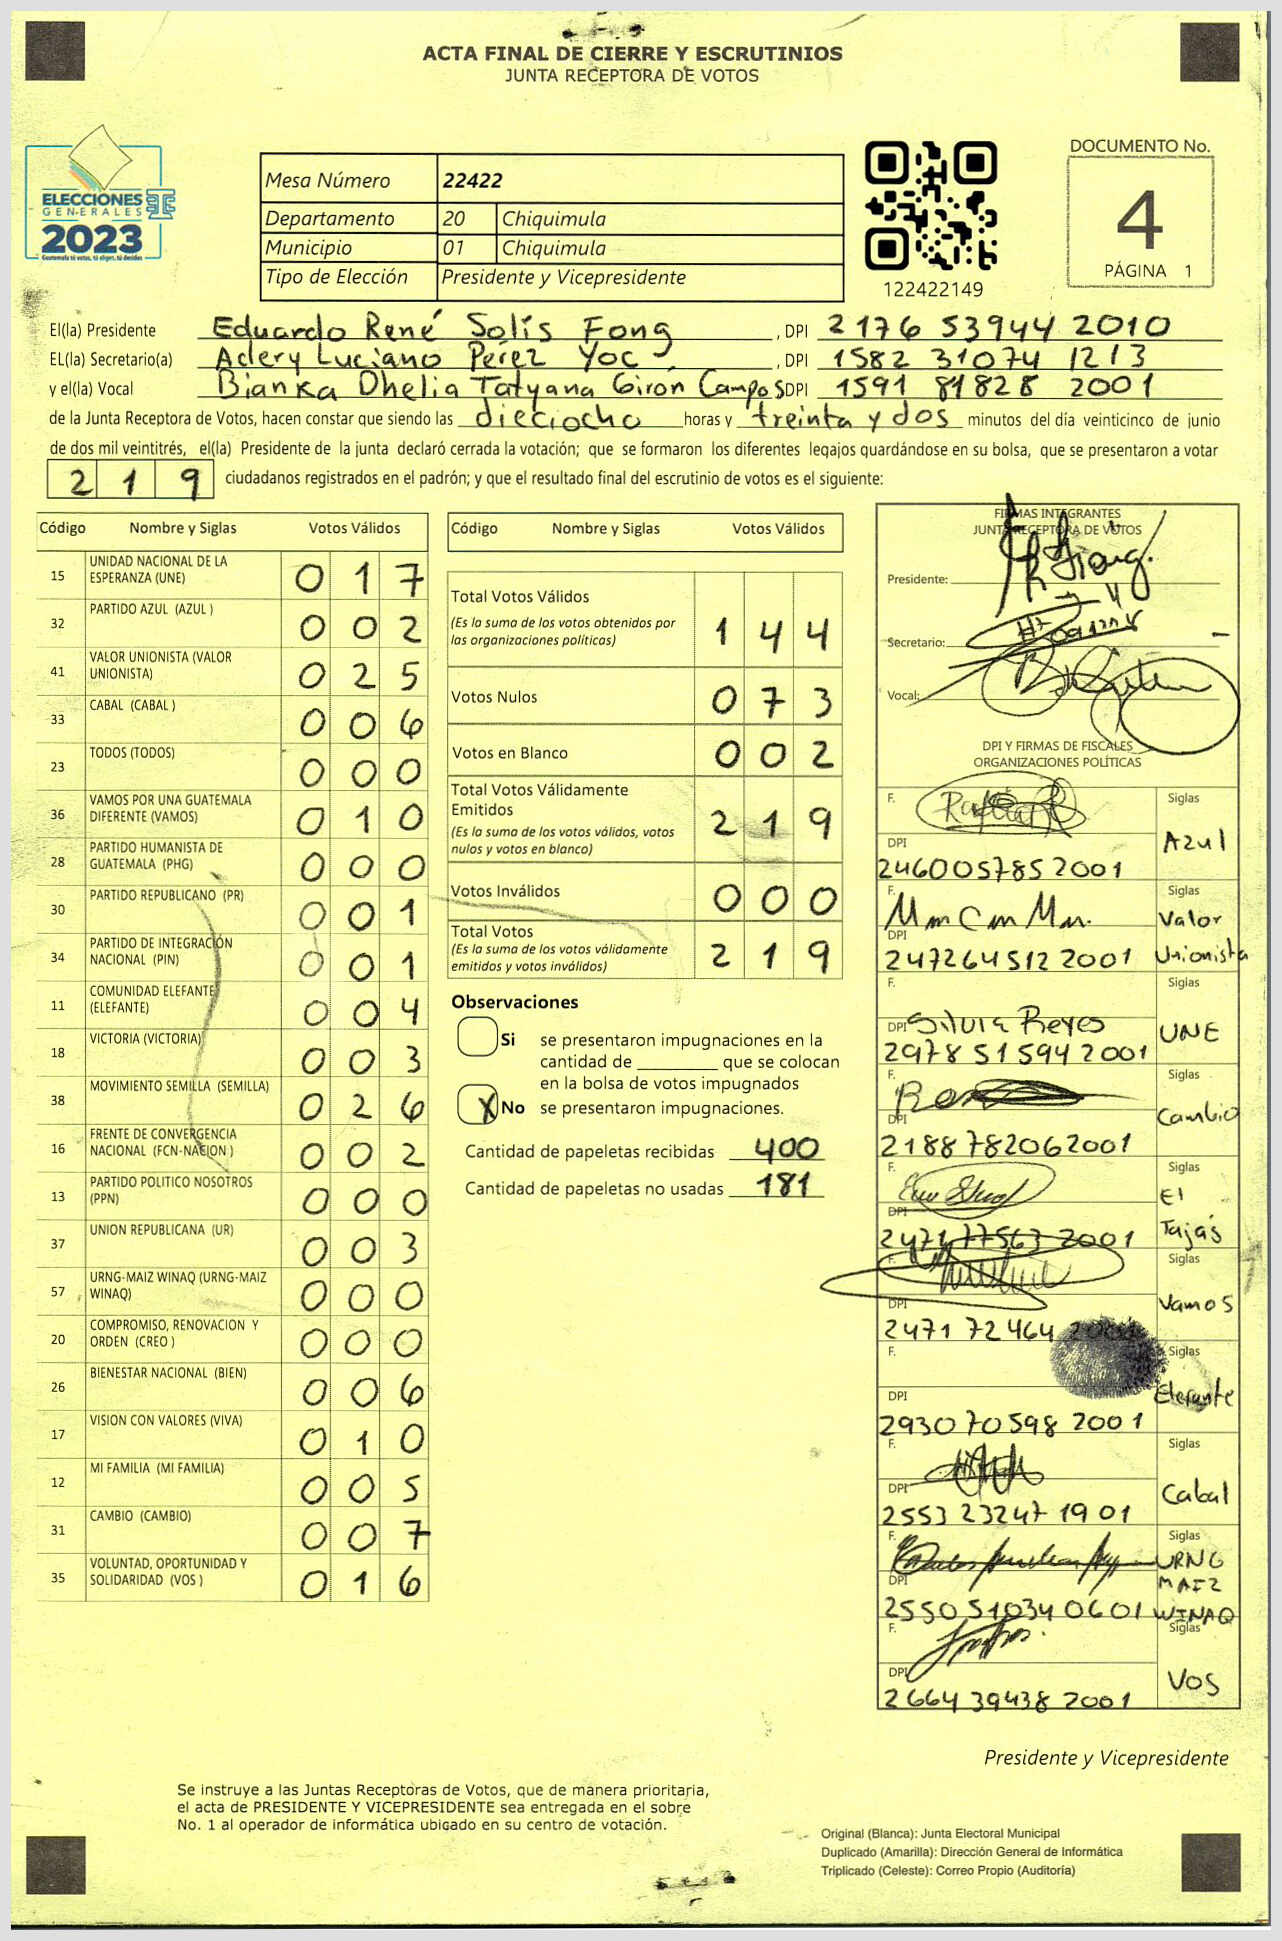 ACTA FINAL DE CIERRE Y ESCRUTINIOS
JUNTA RECEPTORA DE VOTOS
ELECCIONES
GENERALES
2023
Guatemala tú votas, tú eliges, tú decides
Mesa Número 22422
Departamento 20 Chiquimula
Municipio 01 Chiquimula
Tipo de Elección Presidente y Vicepresidente
122422149
DOCUMENTO No.
4
PÁGINA 1
El(la) Presidente Eduardo René Solís Fong, DPI 2176 53944 2010
EL(la) Secretario(a) Adery Luciano Pérez Yoc, DPI 1582 31074 1213
y el(la) Vocal Bianka Dhelia Tatyana Girón Campos DPI 1591 81828 2001
de la Junta Receptora de Votos, hacen constar que siendo las dieciocho horas y treinta y dos minutos del día veinticinco de junio
de dos mil veintitrés, el(la) Presidente de la junta declaró cerrada la votación; que se formaron los diferentes legajos guardándose en su bolsa, que se presentaron a votar
219 ciudadanos registrados en el padrón; y que el resultado final del escrutinio de votos es el siguiente:
Código Nombre y Siglas Votos Válidos
15 UNIDAD NACIONAL DE LA ESPERANZA (UNE) 017
32 PARTIDO AZUL (AZUL ) 002
41 VALOR UNIONISTA (VALOR UNIONISTA) 025
33 CABAL (CABAL ) 006
23 TODOS (TODOS) 000
36 VAMOS POR UNA GUATEMALA DIFERENTE (VAMOS) 010
28 PARTIDO HUMANISTA DE GUATEMALA (PHG) 000
30 PARTIDO REPUBLICANO (PR) 001
34 PARTIDO DE INTEGRACIÓN NACIONAL (PIN) 001
11 COMUNIDAD ELEFANTE (ELEFANTE) 004
18 VICTORIA (VICTORIA) 003
38 MOVIMIENTO SEMILLA (SEMILLA) 026
16 FRENTE DE CONVERGENCIA NACIONAL (FCN-NACION ) 002
13 PARTIDO POLITICO NOSOTROS (PPN) 000
37 UNION REPUBLICANA (UR) 003
57 URNG-MAIZ WINAQ (URNG-MAIZ WINAQ) 000
20 COMPROMISO, RENOVACION Y ORDEN (CREO ) 000
26 BIENESTAR NACIONAL (BIEN) 006
17 VISION CON VALORES (VIVA) 010
12 MI FAMILIA (MI FAMILIA) 005
31 CAMBIO (CAMBIO) 007
35 VOLUNTAD, OPORTUNIDAD Y SOLIDARIDAD (VOS ) 016
Código Nombre y Siglas Votos Válidos
Total Votos Válidos 144
(Es la suma de los votos obtenidos por
las organizaciones políticas)
Votos Nulos 073
Votos en Blanco 002
Total Votos Válidamente
Emitidos 219
(Es la suma de los votos válidos, votos
nulos y votos en blanco)
Votos Inválidos 000
Total Votos 219
(Es la suma de los votos válidamente
emitidos y votos inválidos)
Observaciones
Si se presentaron impugnaciones en la
cantidad de ________ que se colocan
en la bolsa de votos impugnados
X No se presentaron impugnaciones.
Cantidad de papeletas recibidas 400
Cantidad de papeletas no usadas 181
FIRMAS INTEGRANTES
JUNTA RECEPTORA DE VOTOS
Presidente:
Secretario:
Vocal:
DPI Y FIRMAS DE FISCALES
ORGANIZACIONES POLÍTICAS
F. Siglas
DPI Azul
246005785 2001
F. Siglas
Valor
DPI
247264512 2001 Unionista
F. Siglas
DPI Silvia Reyes UNE
2978 51594 2001
F. Siglas
DPI Cambio
2188 78206 2001
F. Siglas
DPI El
2471 77563 2001 Tajás
F. Siglas
DPI Vamos
2471 72464
F. Siglas
DPI Elefante
2930 70598 2001
F. Siglas
DPI Cabal
2553 23247 1901
F. Siglas
URNG
DPI MAIZ
2550 51034 0601 WINAQ
F. Siglas
DPI VOS
2664 39438 2001
Presidente y Vicepresidente
Se instruye a las Juntas Receptoras de Votos, que de manera prioritaria,
el acta de PRESIDENTE Y VICEPRESIDENTE sea entregada en el sobre
No. 1 al operador de informática ubicado en su centro de votación.
Original (Blanca): Junta Electoral Municipal
Duplicado (Amarilla): Dirección General de Informática
Triplicado (Celeste): Correo Propio (Auditoría)